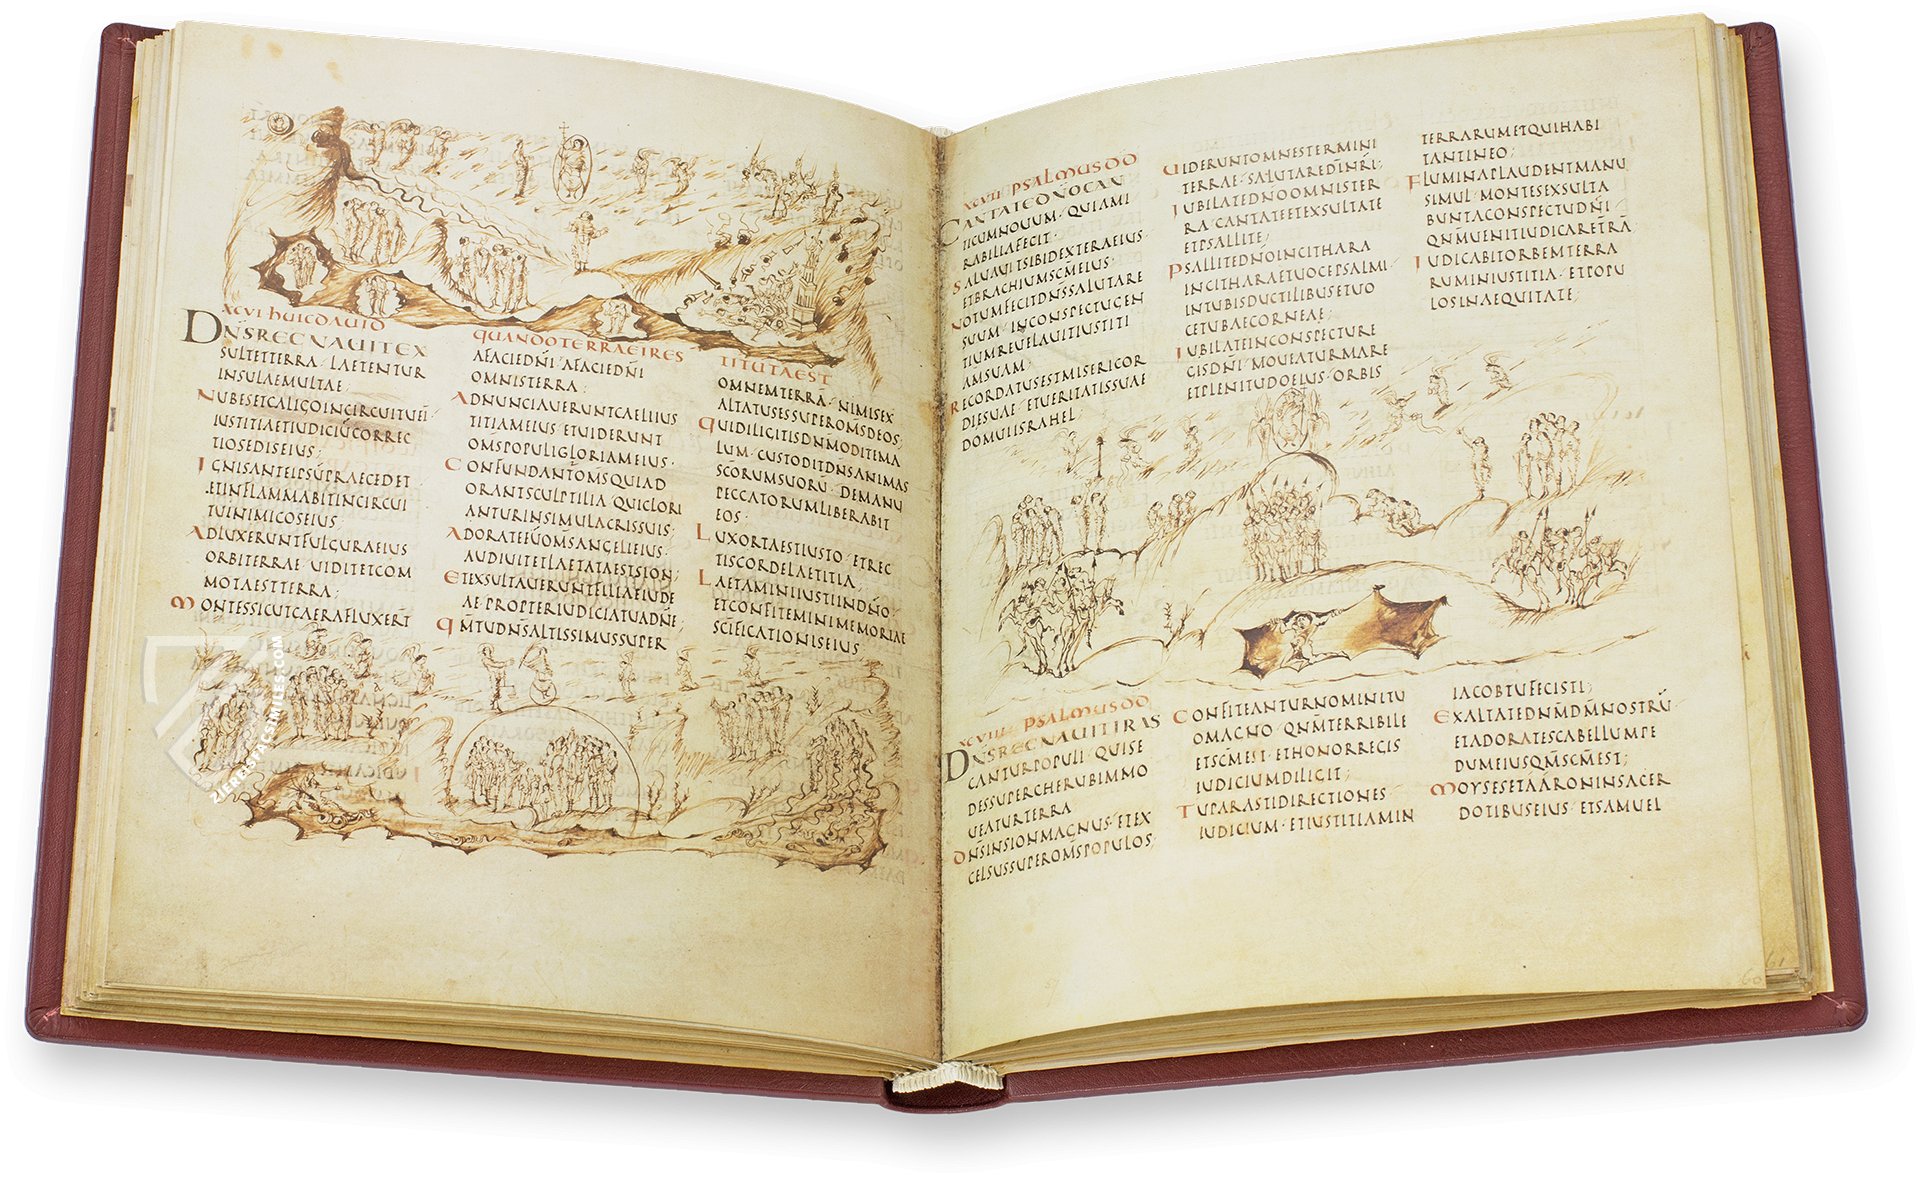 XCVI HUIC DAUID
QUANDO TERRA EI RES
TITUTA EST
DN̄S REGNAUIT EX
SULTET TERRA · LAETENTUR
INSULAE MULTAE;
NUBES ET CALIGO IN CIRCUITU EI᷎
IUSTITIA ET IUDICIŪ CORREC
TIO SEDIS EIUS;
IGNIS ANTE IPSŪ PRAECEDET
ET INFLAMMABIT IN CIRCUI
TU INIMICOS EIUS;
ADLUXERUNT FULGURA EIUS
ORBI TERRAE · UIDIT ET COM
MOTA EST TERRA;
MONTES SICUT CAERA FLUXER̄T
A FACIE DN̄I · A FACIE DN̄I
OMNIS TERRA;
ADNUNCIAUERUNT CAELI IUS
TITIAM EIUS · ET UIDERUNT
OM̄S POPULI GLORIAM EIUS·
CONFUNDANT᷎ OM̄S QUI AD
ORANT SCULPTILIA · QUI GLORI
ANTUR IN SIMULACRIS SUIS;
ADORATE EŪ OM̄S ANGELI EIUS·
AUDIUIT ET LAETATA EST SION;
ET EXSULTAUERUNT FILIAE IUDE
AE · PROPTER IUDICIA TUA DN̄E;
QM̄ TU DN̄S ALTISSIMUS SUPER
OMNEM TERRA · NIMIS EX
ALTATUS ES SUPER OM̄S DEOS;
QUI DILIGITIS DN̄M ODITE MA
LUM · CUSTODIT DN̄S ANIMAS
SC̄ORUM SUORŪ · DE MANU
PECCATORUM LIBERABIT
EOS·
LUX ORTA EST IUSTO · ET REC
TIS CORDE LAETITIA;
LAETAMINI IUSTI IN DN̄O·
ET CONFITEMINI MEMORIAE
SC̄IFICATIONIS EIUS
ZIEREIS FACSIMILES.COM
XCVII PSALMUS DD
CANTATE DN̄O CAN
TICUM NOUUM · QUIA MI
RABILIA FECIT·
SALUAUIT SIBI DEXTERA EIUS·
ET BRACHIUM SC̄M EIUS;
NOTUM FECIT DN̄S SALUTARE
SUUM · IN CONSPECTU GEN
TIUM REUELAUIT IUSTITI
AM SUAM;
RECORDATUS EST MISERICOR
DIE SUAE · ET UERITATIS SUAE
DOMUI ISRAHEL;
UIDERUNT OMNES TERMINI
TERRAE · SALUTARE DI NR̄I;
IUBILATE DN̄O OMNIS TER
RA · CANTATE ET EXSULTATE
ET PSALLITE;
PSALLITE DN̄O IN CITHARA
IN CITHARA ET UOCE PSALMI·
IN TUBIS DUCTILIBUS ET UO
CE TUBAE CORNEAE;
IUBILATE IN CONSPECTU RE
GIS DN̄I · MOUEATUR MARE
ET PLENITUDO EIUS · ORBIS
TERRARUM ET QUI HABI
TANT IN EO;
FLUMINA PLAUDENT MANU
SIMUL · MONTES EXSULTA
BUNT A CONSPECTU DN̄I·
QN̄M UENIT IUDICARE TR̄Ā
IUDICABIT ORBEM TERRA
RUM IN IUSTITIA · ET POPU
LOS IN AEQUITATE;
XCVIII PSALMUS DD
DN̄S REGNAUIT IRAS
CANTUR POPULI · QUI SE
DES SUPER CHERUBIM MO
UEATUR TERRA
DN̄S IN SION MAGNUS · ET EX
CELSUS SUPER OM̄S POPULOS;
CONFITEANTUR NOMINI TU
O MAGNO · QN̄M TERRIBILE
ET SC̄M EST · ET HONOR REGIS
IUDICIUM DILIGIT;
TU PARASTI DIRECTIONES·
IUDICIUM · ET IUSTITIAM IN
IACOB TU FECISTI;
EXALTATE DN̄M DM̄ NOSTRŪ·
ET ADORATE SCABELLUM PE
DUM EIUS QM̄ SC̄M EST;
MOYSES ET AARON IN SACER
DOTIBUS EIUS · ET SAMUEL
60
61